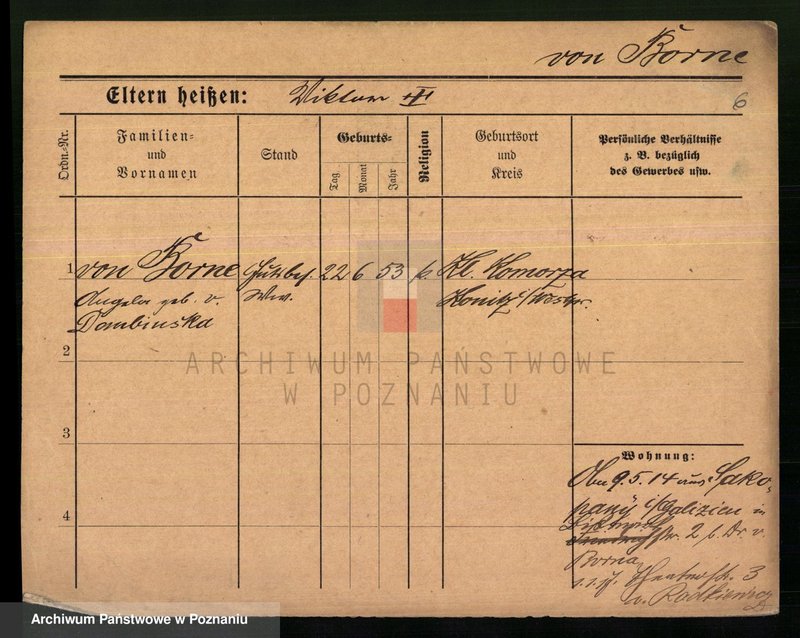 von Borne
6
Eltern heißen: Viktor
Ordn.-Nr.
Familien-
und
Vornamen
Stand
Geburts-
Tag
Monat
Jahr
Religion
Geburtsort
und
Kreis
Persönliche Verhältnisse
z. B. bezüglich
des Gewerbes usw.
1 von Borne Gutsbes. 22 6 53 k. Kl. Komorza
Angela geb. v. Wwe. Konitz i/Westpr.
Dombinska
2
3
4
Wohnung:
9.5.14 aus Sako-
pany i/Galizien in
str. 2 b. Dr. v.
Borna
3
ARCHIWUM PAŃSTWOWE
W POZNANIU
Archiwum Państwowe w Poznaniu